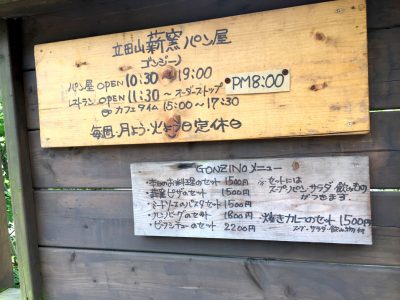 立田山薪窯パン屋
ゴンジーノ
パン屋 OPEN 10:30〜19:00
レストラン OPEN 11:30〜オーダーストップ PM8:00
カフェタイム 15:00〜17:30
毎週.月よう・火よう日定休日
GONZINO メニュー
・本日のお料理のセット 1500円
・薪窯ピザのセット 1500円
・ミートソースのパスタセット 1500円
・ハンバーグのセット 1800円
・ビーフシチューのセット 2200円
※セットには
スープ・パン・サラダ・飲みもの
がつきます。
・焼きカレーのセット 1500円
スープ・サラダ・飲み物付